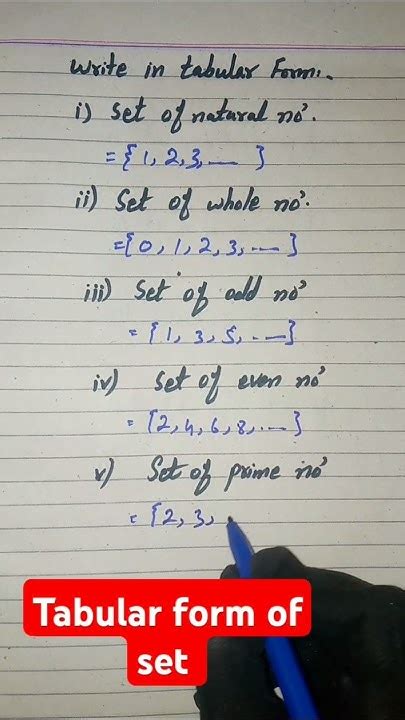 Write in tabular Form:.
i) Set of natural no'.
= { 1, 2, 3, ---- }
ii) Set of whole no'.
= { 0, 1, 2, 3, ---- }
iii) Set of odd no'
= { 1, 3, 5, ---- }
iv) Set of even no'
= { 2, 4, 6, 8, --- }
v) Set of prime no'
= { 2, 3,
Tabular form of
set